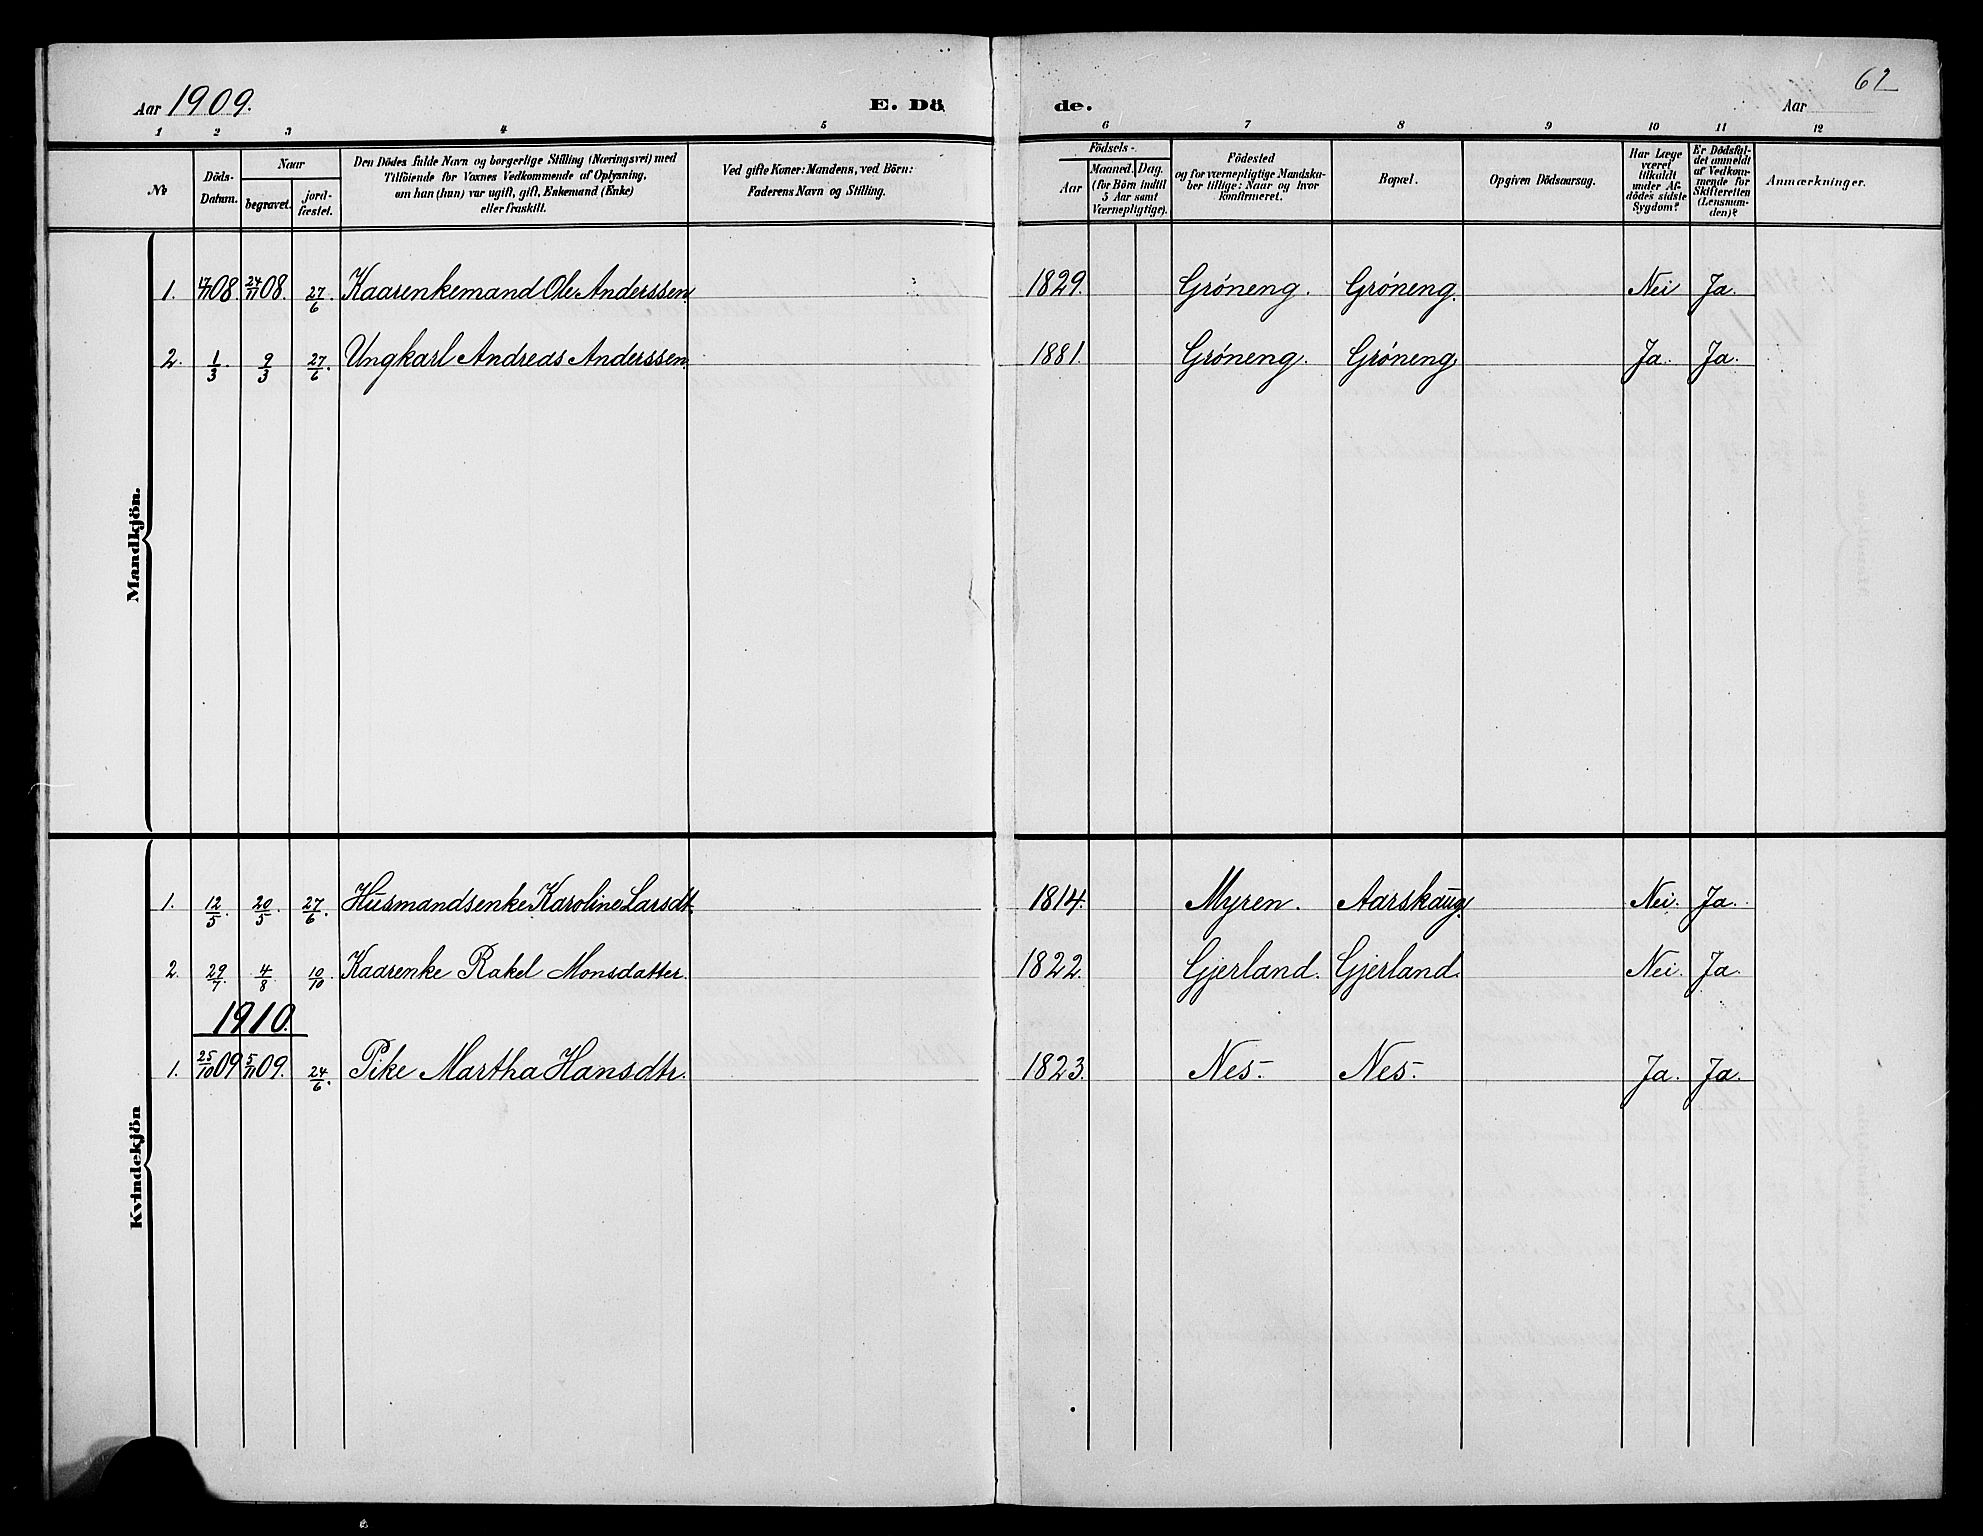 Aar 1909. E. Dö de. Aar 62
1 2 3 4 5 6 7 8 9 10 11 12
No
Döds-Datum.
Naar
begravet.
jord-fæstet.
Den Dödes fulde Navn og borgerlige Stilling (Næringsvei) med
Tilföiende for Voxnes Vedkommende af Oplysning,
om han (hun) var ugift, gift, Enkemand (Enke)
eller fraskilt.
Ved gifte Koner: Mandens, ved Börn:
Faderens Navn og Stilling.
Födsels-
Aar
Maaned. Dag.
(for Börn indtil
5 Aar samt
Værnepligtige).
Födested
og for værnepligtige Mandska-
ber tillige: Naar og hvor
konfirmeret.
Bopæl.
Opgiven Dödsaarsag.
Har Læge
været
tilkaldt
under Af-
dödes sidste
Sygdom?
Er Dödsfal-
det anmeldt
af Vedkom-
mende for
Skifteretten
(Lensman-
den)?
Anmærkninger.
Mandkjön.
1. 17/11 08. 24/11 08. 27/6. Kaarenkemand Ole Anderssen 1829. Gröneng. Gröneng. Nei Ja.
2. 1/3. 9/3 27/6. Ungkarl Andreas Anderssen. 1881. Gröneng. Gröneng. Ja. Ja.
Kvindekjön
1. 12/5. 20/5. 27/6. Husmandsenke Karoline Larsdt. 1814. Myren. Aarskaug. Nei. Ja.
2. 29/7. 4/8 10/10. Kaarenke Rakel Monsdatter. 1822. Gjerland. Gjerland. Nei. Ja.
1910.
1. 25/10 09 5/11 09. 24/6. Pike Martha Hansdtr. 1823. Nes. Nes. Ja. Ja.